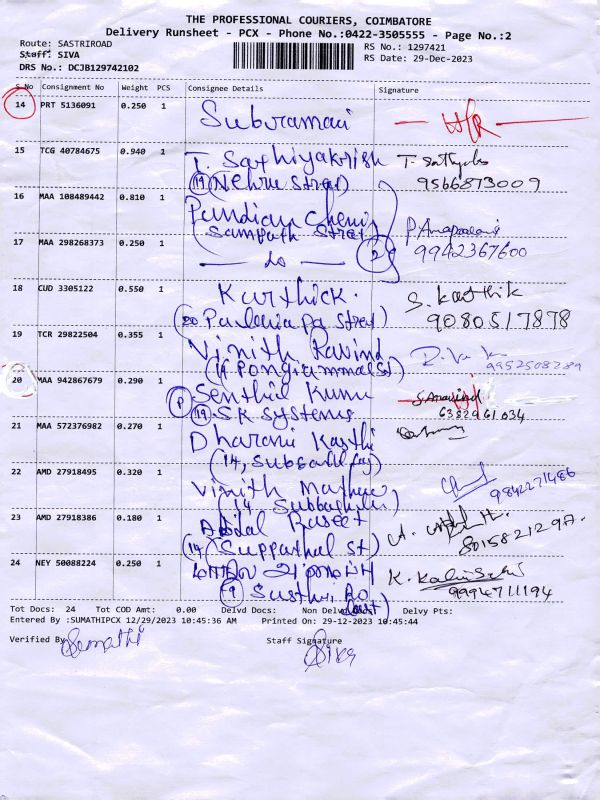 THE PROFESSIONAL COURIERS, COIMBATORE
Delivery Runsheet - PCX - Phone No.:0422-3505555 - Page No.:2
Route: SASTRIROAD
RS No.: 1297421
Staff: SIVA
RS Date: 29-Dec-2023
DRS No.: DCJB129742102
S No Consignment No Weight PCS Consignee Details Signature
14 PRT 5136091 0.250 1 Subramani
15 TCG 40784675 0.940 1 T. Sathiyakrish T. Sathya
(19) Nehru Street) 9566873009
16 MAA 108489442 0.810 1 Pandian Chemi
Sampath Street
17 MAA 298268373 0.250 1 — do — 2 9942367600
18 CUD 3305122 0.550 1 Karthick. S. Karthik
(20 Palaniappa Street) 9080517878
19 TCR 29822504 0.355 1 Vinith Ravind
9952508289
20 MAA 942867679 0.290 1 P Senthil Kumar
19 SK Systems 6382961034
21 MAA 572376982 0.270 1 Dharani Karthi
22 AMD 27918495 0.320 1 Vinith 9842271486
(14 Subbathal
23 AMD 27918386 0.180 1 Abdal
(14) (Suppathal St) 8015821297
24 NEY 50088224 0.250 1 K.
9 Sasthri Ro 9994711194
Tot Docs: 24 Tot COD Amt: 0.00 Delvd Docs: Non Delvd Delvy Pts:
Entered By :SUMATHIPCX 12/29/2023 10:45:36 AM Printed On: 29-12-2023 10:45:44
Verified By Sumathi Staff Signature
Siva